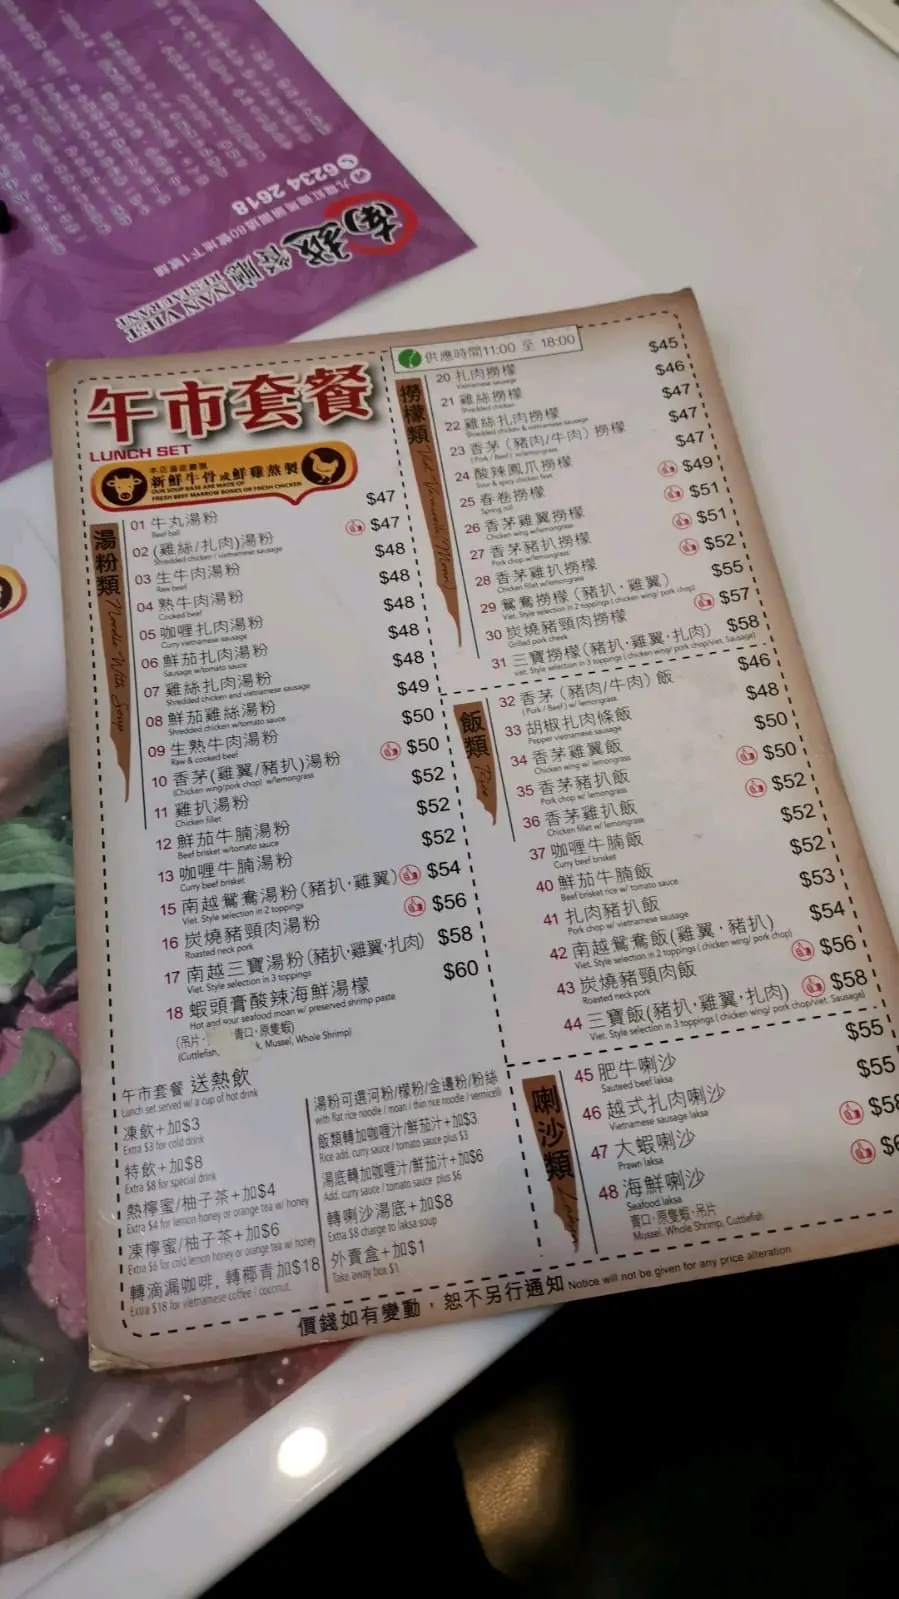 6234 2618
南越餐廳
NAN VIET
RESTAURANT
午市套餐
LUNCH SET
本店湯底嚴選
新鮮牛骨或鮮雞熬製
OUR SOUP BASE ARE MADE OF
FRESH BEEF MARROW BONES OR FRESH CHICKEN
湯粉類
Noodle With Soup
01 牛丸湯粉 $47
Beef ball
02 (雞絲/扎肉)湯粉 $47
Shredded chicken / vietnamese sausage
03 生牛肉湯粉 $48
Raw beef
04 熟牛肉湯粉 $48
Cooked beef
05 咖喱扎肉湯粉 $48
Curry vietnamese sausage
06 鮮茄扎肉湯粉 $48
Sausage w/tomato sauce
07 雞絲扎肉湯粉 $48
Shredded chicken and vietnamese sausage
08 鮮茄雞絲湯粉 $49
Shredded chicken w/tomato sauce
09 生熟牛肉湯粉 $50
Raw & cooked beef
10 香茅(雞翼/豬扒)湯粉 $50
(Chicken wing/pork chop) w/lemongrass
11 雞扒湯粉 $52
Chicken fillet
12 鮮茄牛腩湯粉 $52
Beef brisket w/tomato sauce
13 咖喱牛腩湯粉 $52
Curry beef brisket
15 南越鴛鴦湯粉(豬扒·雞翼) $54
Viet. Style selection in 2 toppings
16 炭燒豬頸肉湯粉 $56
Roasted neck pork
17 南越三寶湯粉(豬扒·雞翼·扎肉) $58
Viet. Style selection in 3 toppings
18 蝦頭膏酸辣海鮮湯檬 $60
Hot and sour seafood moan w/ preserved shrimp paste
(吊片· 青口·原隻蝦)
(Cuttlefish, k, Mussel, Whole Shrimp)
午市套餐 送熱飲
Lunch set served w/ a cup of hot drink
凍飲+加$3
Extra $3 for cold drink
特飲+加$8
Extra $8 for special drink
熱檸蜜/柚子茶+加$4
Extra $4 for lemon honey or orange tea w/ honey
凍檸蜜/柚子茶+加$6
Extra $6 for cold lemon honey or orange tea w/ honey
轉滴漏咖啡, 轉椰青加$18
Extra $18 for vietnamese coffee / coconut.
湯粉可選河粉/檬粉/金邊粉/粉絲
with flat rice noodle / moan / thin rice noodle / vermicelli
飯類轉加咖喱汁/鮮茄汁+加$3
Rice add. curry sauce / tomato sauce plus $3
湯底轉加咖喱汁/鮮茄汁+加$6
Add. curry sauce / tomato sauce plus $6
轉喇沙湯底+加$8
Extra $8 charge to laksa soup
外賣盒+加$1
Take away box $1
供應時間11:00 至 18:00
撈檬類
20 扎肉撈檬 $45
Vietnamese sausage
21 雞絲撈檬 $46
Shredded chicken
22 雞絲扎肉撈檬 $47
Shredded chicken & vietnamese sausage
23 香茅(豬肉/牛肉)撈檬 $47
(Pork / Beef) w/lemongrass
24 酸辣鳳爪撈檬 $47
Sour & spicy chicken feet
25 春卷撈檬 $49
Spring roll
26 香茅雞翼撈檬 $51
Chicken wing w/lemongrass
27 香茅豬扒撈檬 $51
Pork chop w/lemongrass
28 香茅雞扒撈檬 $52
Chicken fillet w/lemongrass
29 鴛鴦撈檬(豬扒·雞翼) $55
Viet. Style selection in 2 toppings ( chicken wing/ pork chop)
30 炭燒豬頸肉撈檬 $57
Grilled pork cheek
31 三寶撈檬(豬扒·雞翼·扎肉) $58
viet. Style selection in 3 toppings ( chicken wing/ pork chop/viet. Sausage)
飯類
Rice
32 香茅(豬肉/牛肉)飯 $46
(Pork / Beef) w/ lemongrass
33 胡椒扎肉條飯 $48
Pepper vietnamese sausage
34 香茅雞翼飯 $50
Chicken wing w/ lemongrass
35 香茅豬扒飯 $50
Pork chop w/ lemongrass
36 香茅雞扒飯 $52
Chicken fillet w/ lemongrass
37 咖喱牛腩飯 $52
Curry beef brisket
40 鮮茄牛腩飯 $52
Beef brisket rice w/ tomato sauce
41 扎肉豬扒飯 $53
Pork chop w/ vietnamese sausage
42 南越鴛鴦飯(雞翼·豬扒) $54
Viet. Style selection in 2 toppings ( chicken wing/ pork chop)
43 炭燒豬頸肉飯 $56
Roasted neck pork
44 三寶飯(豬扒·雞翼·扎肉) $58
Viet. Style selection in 3 toppings ( chicken wing/ pork chop/viet. Sausage)
喇沙類
45 肥牛喇沙 $55
Sauteed beef laksa
46 越式扎肉喇沙 $55
Vietnamese sausage laksa
47 大蝦喇沙 $58
Prawn laksa
48 海鮮喇沙
Seafood laksa
青口·原隻蝦·吊片
Mussel, Whole Shrimp, Cuttlefish
價錢如有變動，恕不另行通知 Notice will not be given for any price alteration